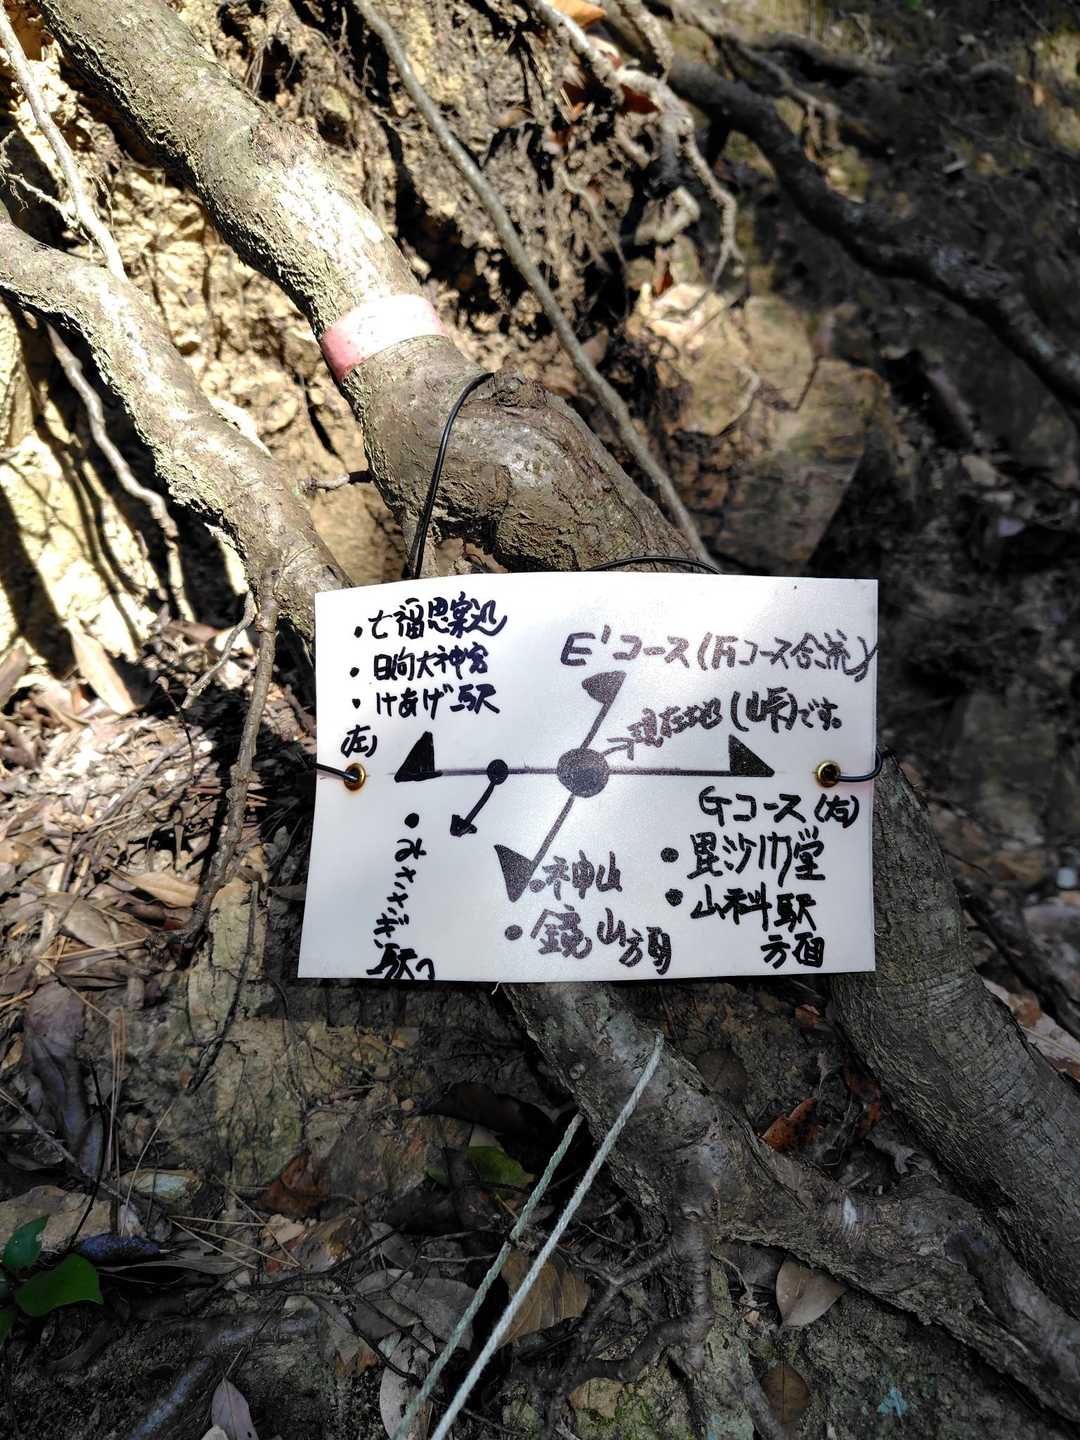 ・七福思案処
・日向大神宮
・けあげ駅
(左)
E'コース(Fコース合流)
現在地(峠)です。
Gコース(右)
・毘沙門堂
・山科駅
方面
・神山
・鏡山方面
・みささぎ駅へ